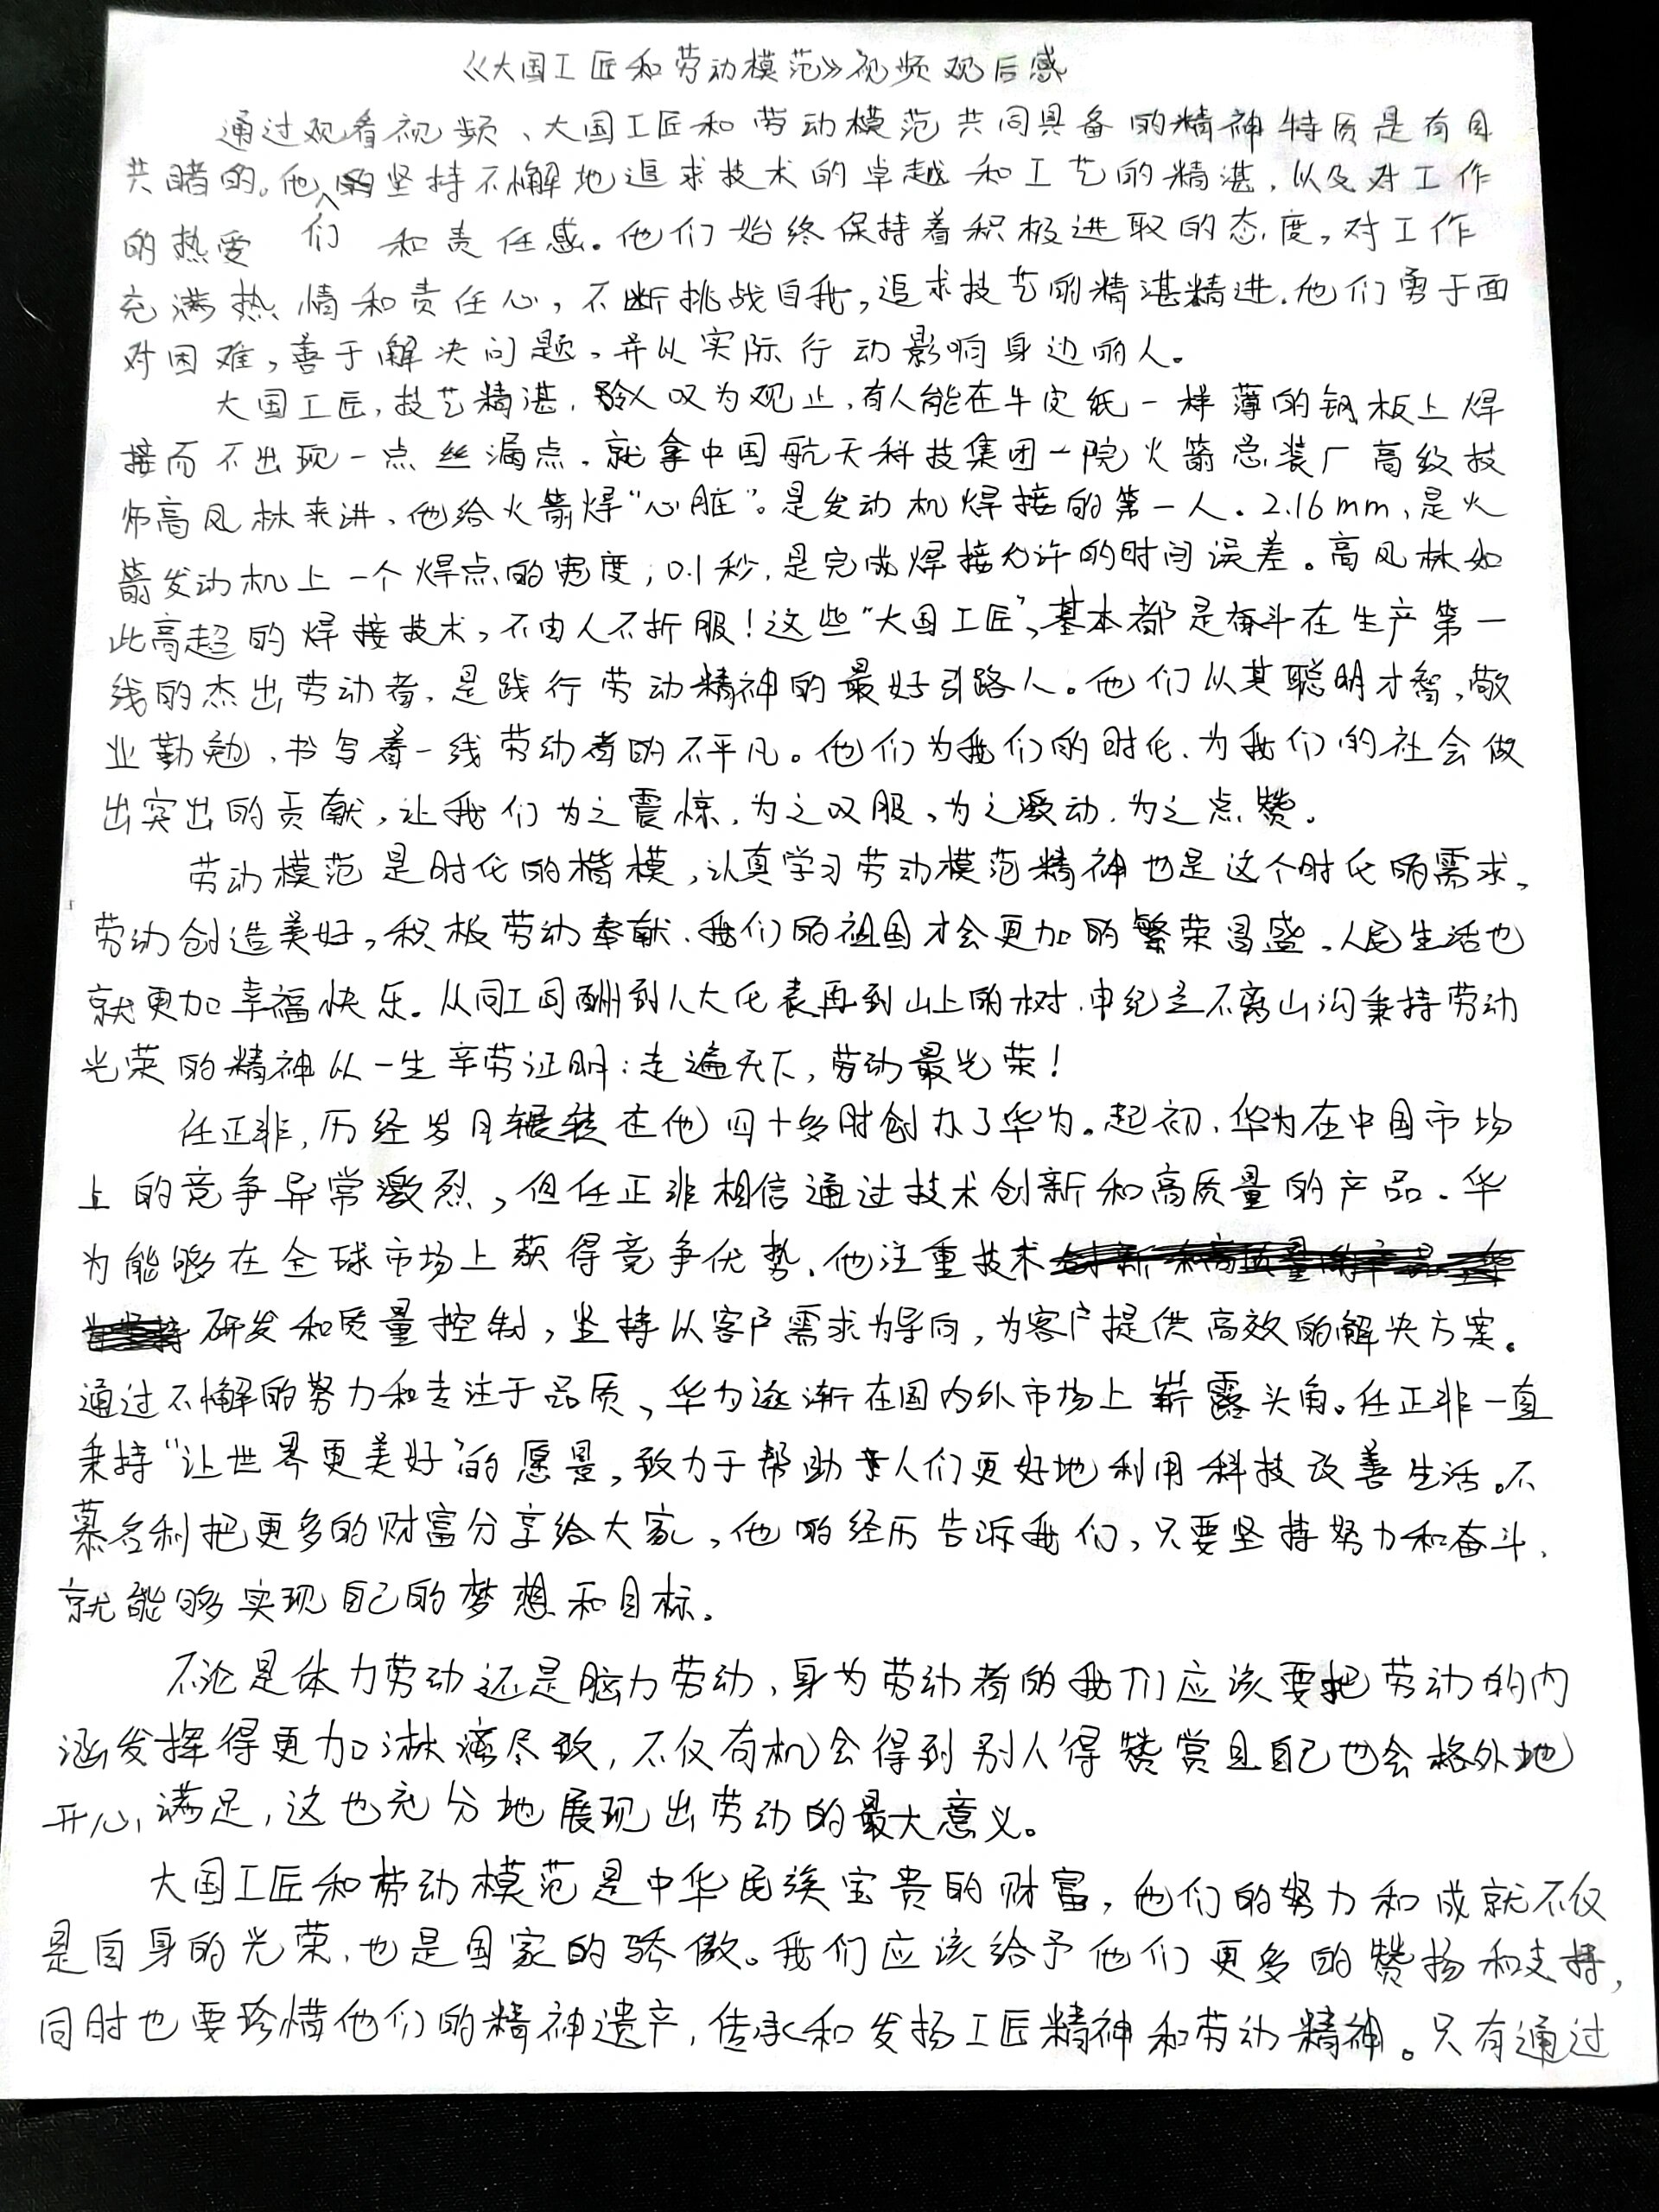 《大国工匠和劳动模范》视频观后感
通过观看视频、大国工匠和劳动模范共同具备的精神特质是有目
共睹的。他们坚持不懈地追求技术的卓越和工艺的精湛，以及对工作
的热爱和责任感。他们始终保持着积极进取的态度，对工作
充满热情和责任心，不断挑战自我，追求技艺的精湛精进．他们勇于面
对困难，善于解决问题，并以实际行动影响身边的人。
大国工匠，技艺精湛，令人叹为观止，有人能在牛皮纸一样薄的钢板上焊
接而不出现一点丝漏点．就拿中国航天科技集团一院火箭总装厂高级技
师高凤林来讲、他给火箭焊“心脏”。是发动机焊接的第一人。2.16mm，是火
箭发动机上一个焊点的宽度，0.1秒，是完成焊接允许的时间误差。高凤林如
此高超的焊接技术，不由人不折服！这些“大国工匠”，基本都是奋斗在生产第一
线的杰出劳动者，是践行劳动精神的最好引路人。他们以其聪明才智，敬
业勤勉，书写着一线劳动者的不平凡。他们为我们的时代、为我们的社会做
出突出的贡献，让我们为之震惊，为之叹服，为之激动，为之点赞。
劳动模范是时代的楷模，认真学习劳动模范精神也是这个时代的需求，
劳动创造美好，积极劳动奉献、我们的祖国才会更加的繁荣昌盛，人民生活也
就更加幸福快乐。从同工同酬到人大代表再到山上的树，申纪兰不离山沟秉持劳动
光荣的精神以一生辛劳证明：走遍天下，劳动最光荣！
任正非，历经岁月辗转在他四十多时创办了华为。起初，华为在中国市场
上的竞争异常激烈，但任正非相信通过技术创新和高质量的产品．华
为能够在全球市场上获得竞争优势．他注重技术
研发和质量控制，坚持以客户需求为导向，为客户提供高效的解决方案。
通过不懈的努力和专注于品质、华为逐渐在国内外市场上崭露头角。任正非一直
秉持“让世界更美好”的愿景，致力于帮助人们更好地利用科技改善生活。不
慕名利把更多的财富分享给大家，他的经历告诉我们，只要坚持努力和奋斗，
就能够实现自己的梦想和目标。
不论是体力劳动还是脑力劳动，身为劳动者的我们应该要把劳动的内
涵发挥得更加淋漓尽致，不仅有机会得到别人得赞赏且自己也会格外地
开心，满足，这也充分地展现出劳动的最大意义。
大国工匠和劳动模范是中华民族宝贵的财富，他们的努力和成就不仅
是自身的光荣，也是国家的骄傲。我们应该给予他们更多的赞扬和支持，
同时也要珍惜他们的精神遗产，传承和发扬工匠精神和劳动精神。只有通过